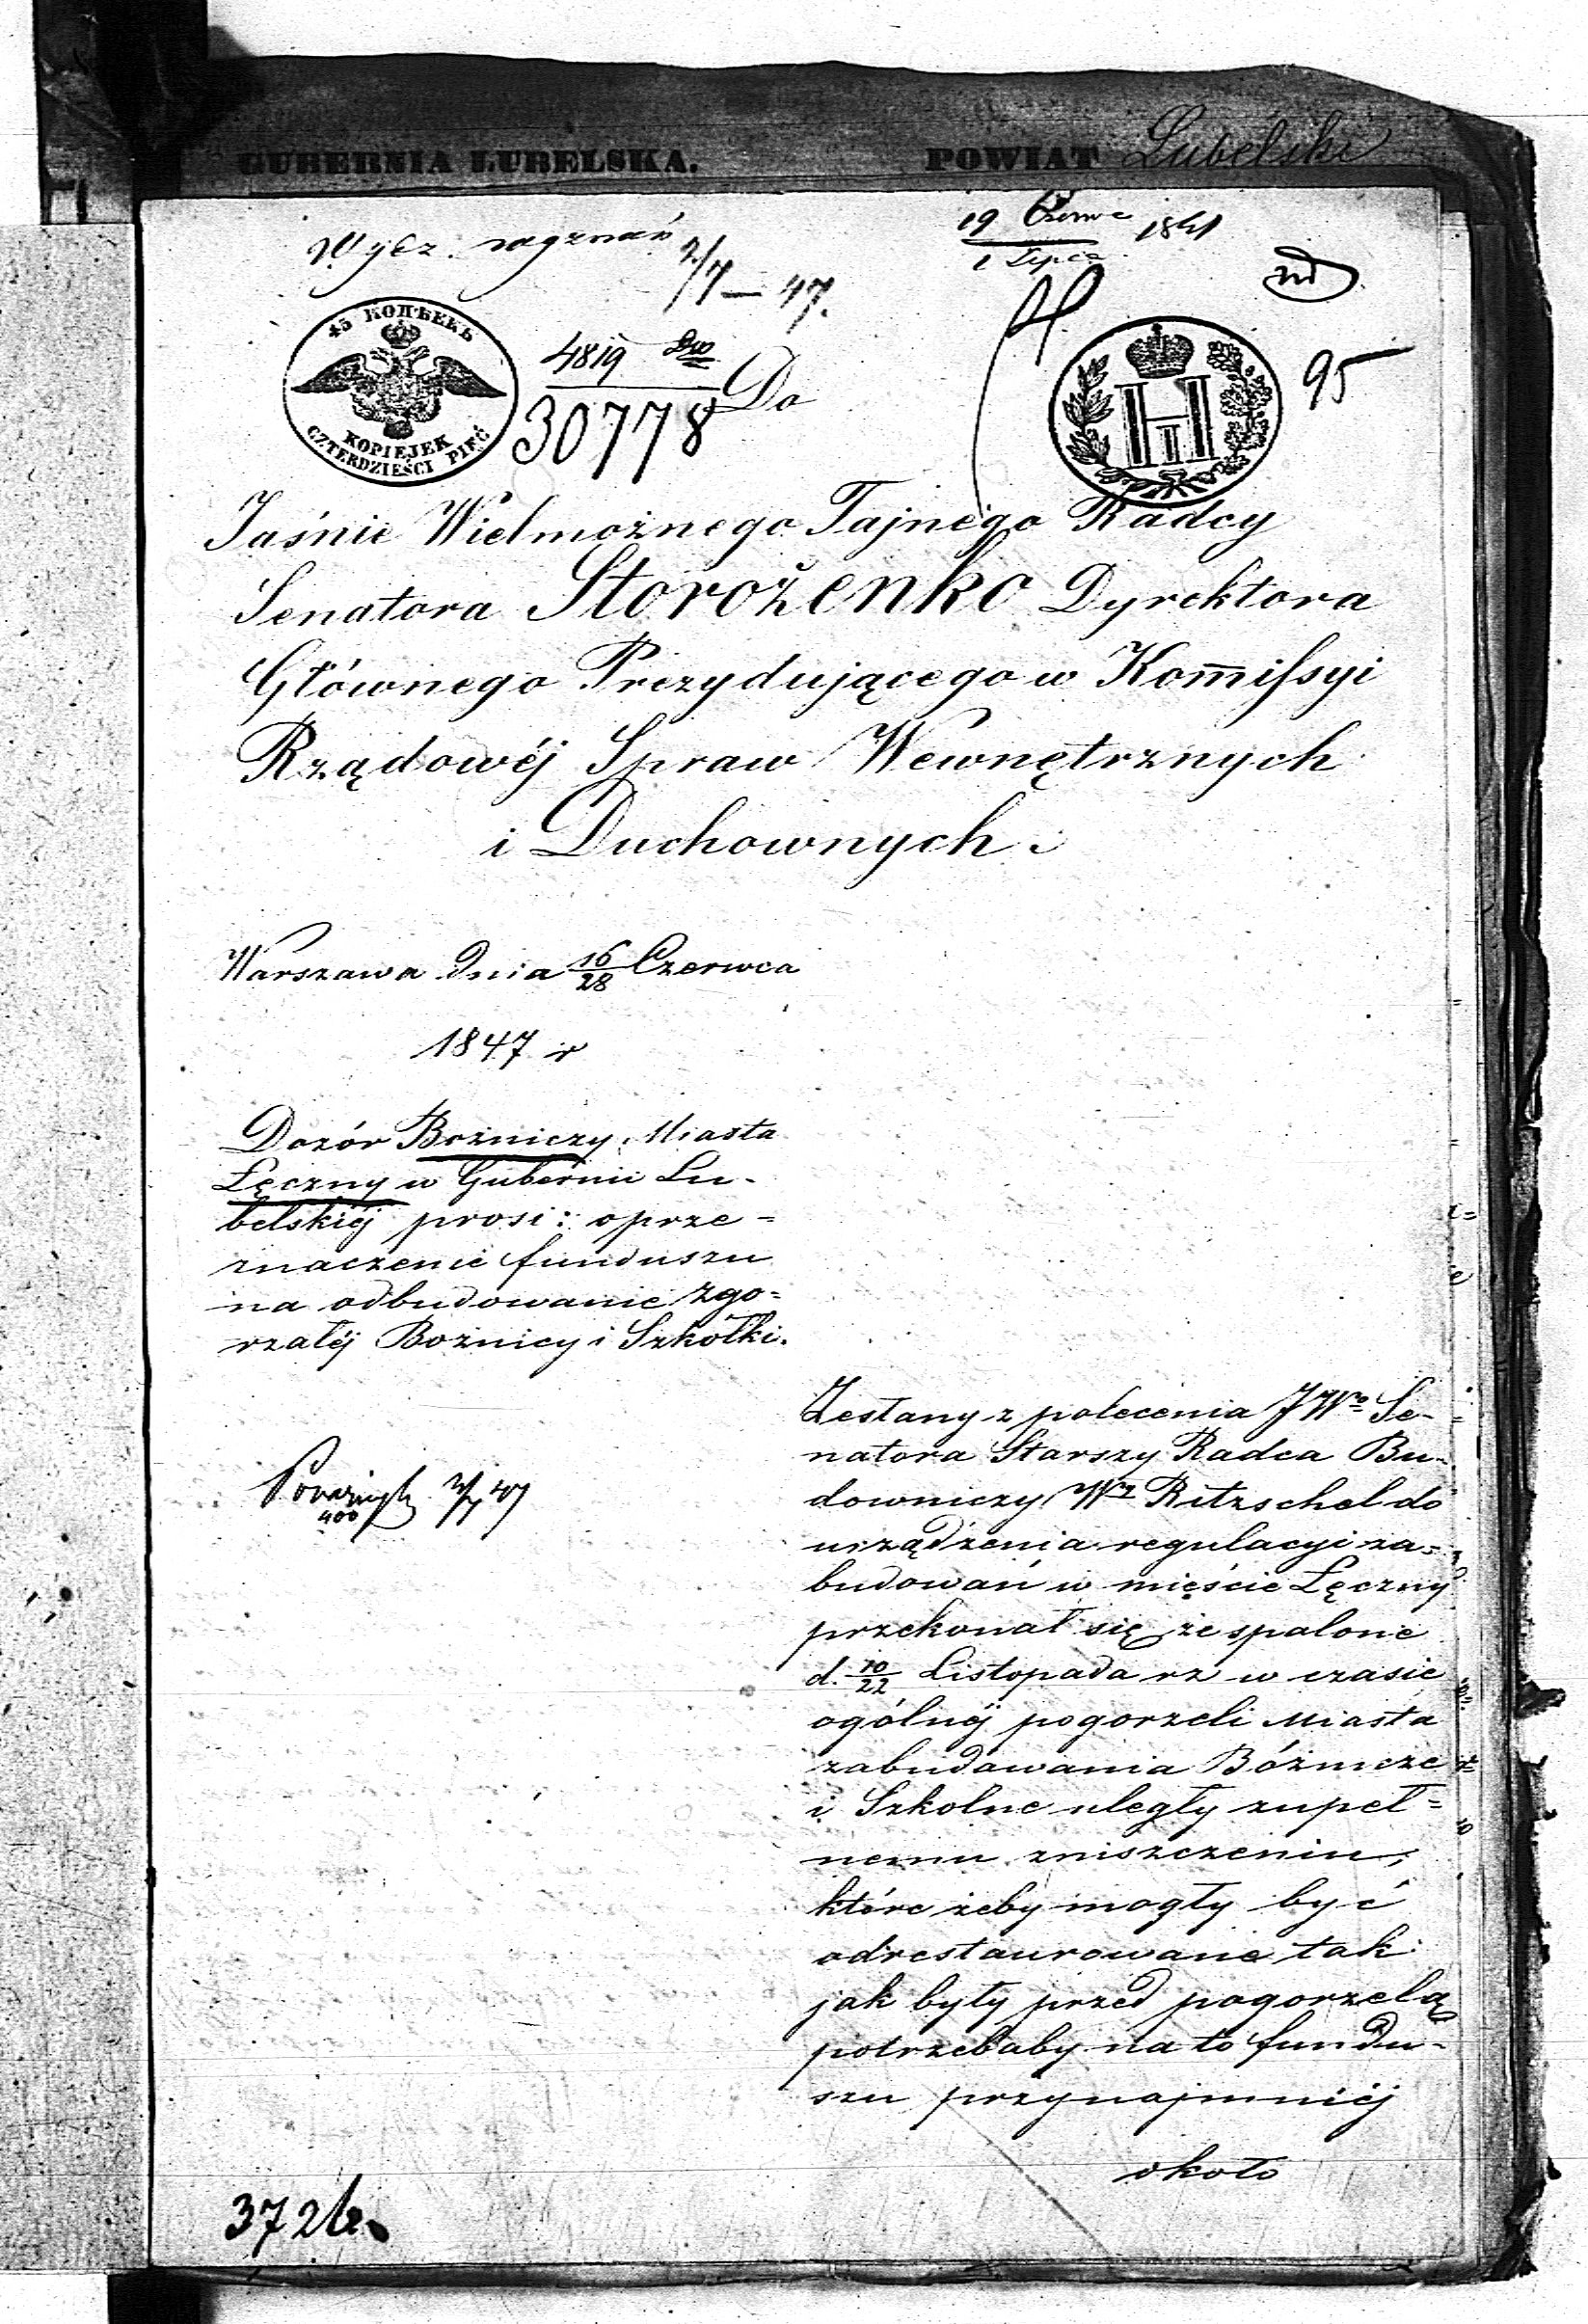 GUBERNIA LUBELSKA. POWIAT Lubelski
19 Czerwc 1847
1 Lipca
2/7 — 47.
45 КОПѢЕКЪ
KOPIEJEK
CZTERDZIEŚCI PIĘĆ
4819
30778
Do
95
H
II
Jaśnie Wielmożnego Tajnego Radcy
Senatora Storożenko Dyrektora
Głównego Prezydującego w Kom̅issyi
Rządowéj Spraw Wewnętrznych
i Duchownych.
Warszawa dnia 16/28 Czerwca
1847 r
Dozór Bożniczy Miasta
Łęczny w Gubernii Lu-
belskiéj prosi: o prze=
znaczenie funduszu
na odbudowanie zgo=
rzałéj Bożnicy i Szkółki.
400
Zesłany z polecenia JWo Se-
natora Starszy Radca Bu-
downiczy Wy Ritzschel do
urządzenia regulacyi za=
budowań w mieście Łęczny
przekonał się że spalone
d. 10/22 Listopada rz w czasie
ogólnéj pogorzeli Miasta
zabudowania Bóżnicze
i Szkolne uległy zupeł=
nemu zniszczeniu,
które żeby mogły być
odrestaurowane tak
jak były przed pogorzelą
potrzebaby na to fundu-
szu przynajmniéj
około